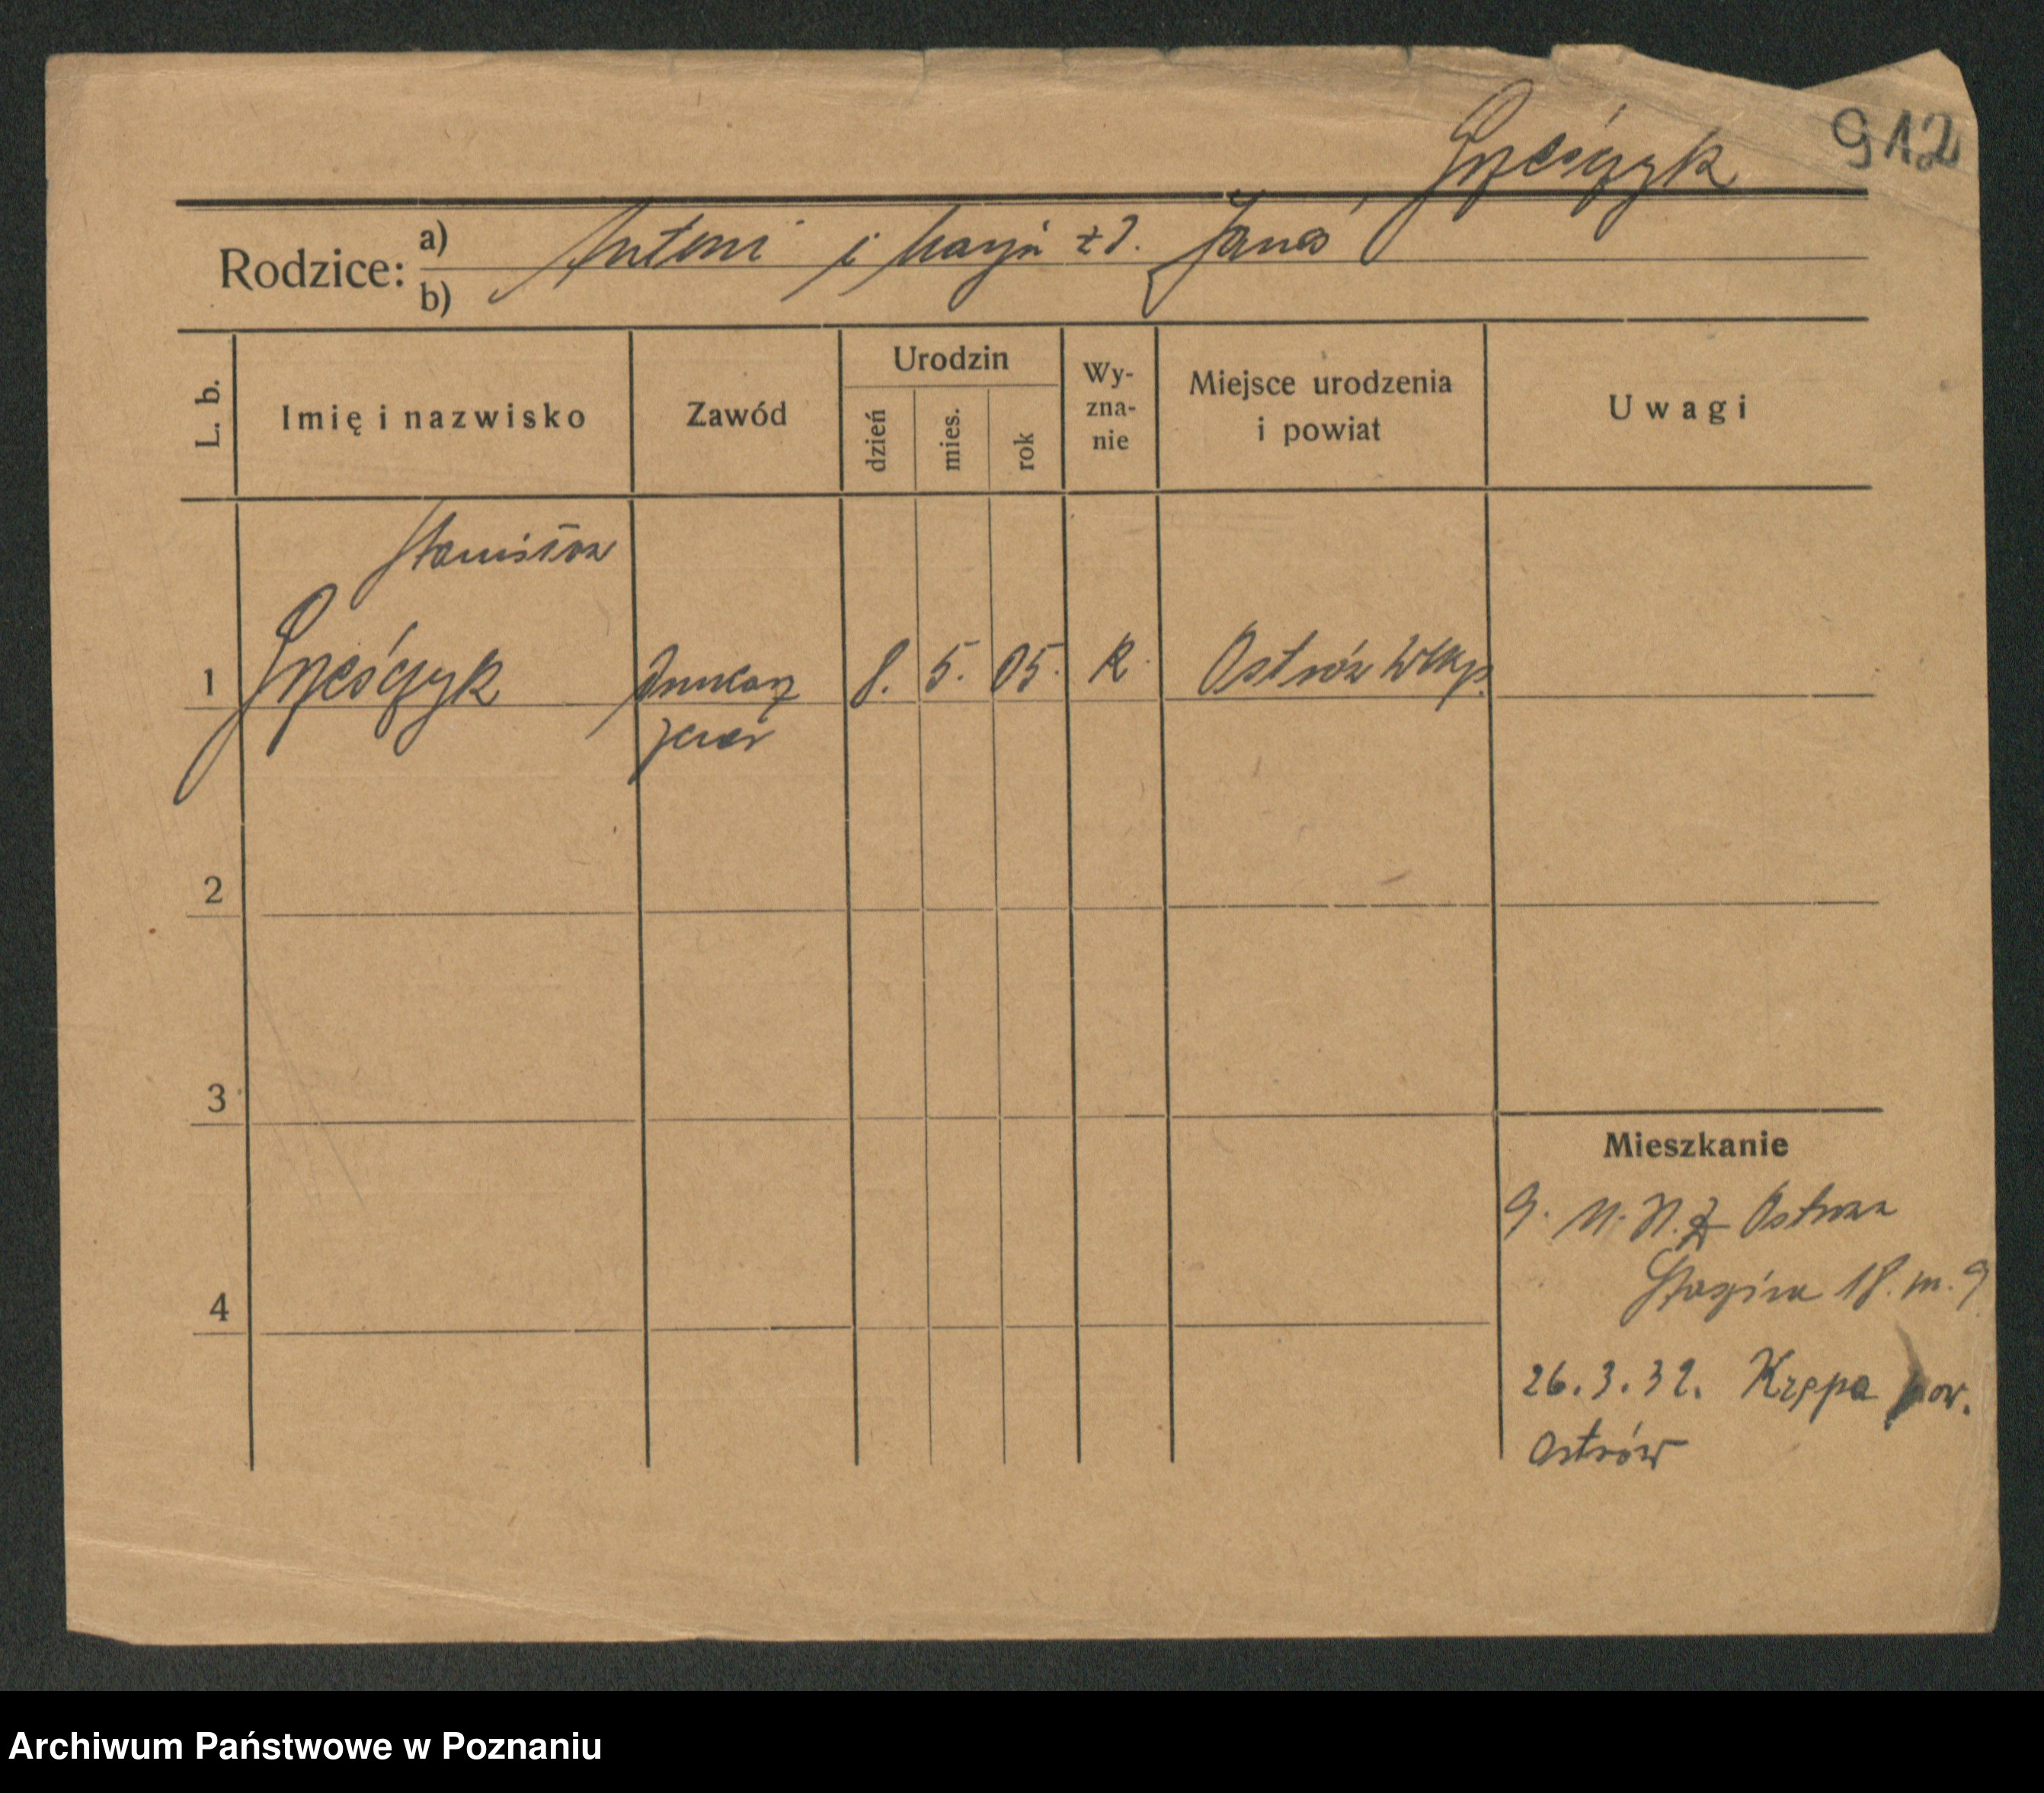 912
Grześczyk
Rodzice: a) Antoni i Marja zd. Janas
b)
L. b. Imię i nazwisko Zawód Urodzin dzień mies. rok Wy-zna-nie Miejsce urodzenia i powiat Uwagi
Stanisław
1 Grześczyk Drukarz 8. 5. 05. K. Ostrów Wlkp.
2
3
4
Mieszkanie
9. Ostrów
18. m. 9
26.3.32. Kępa pow.
Ostrów
Archiwum Państwowe w Poznaniu